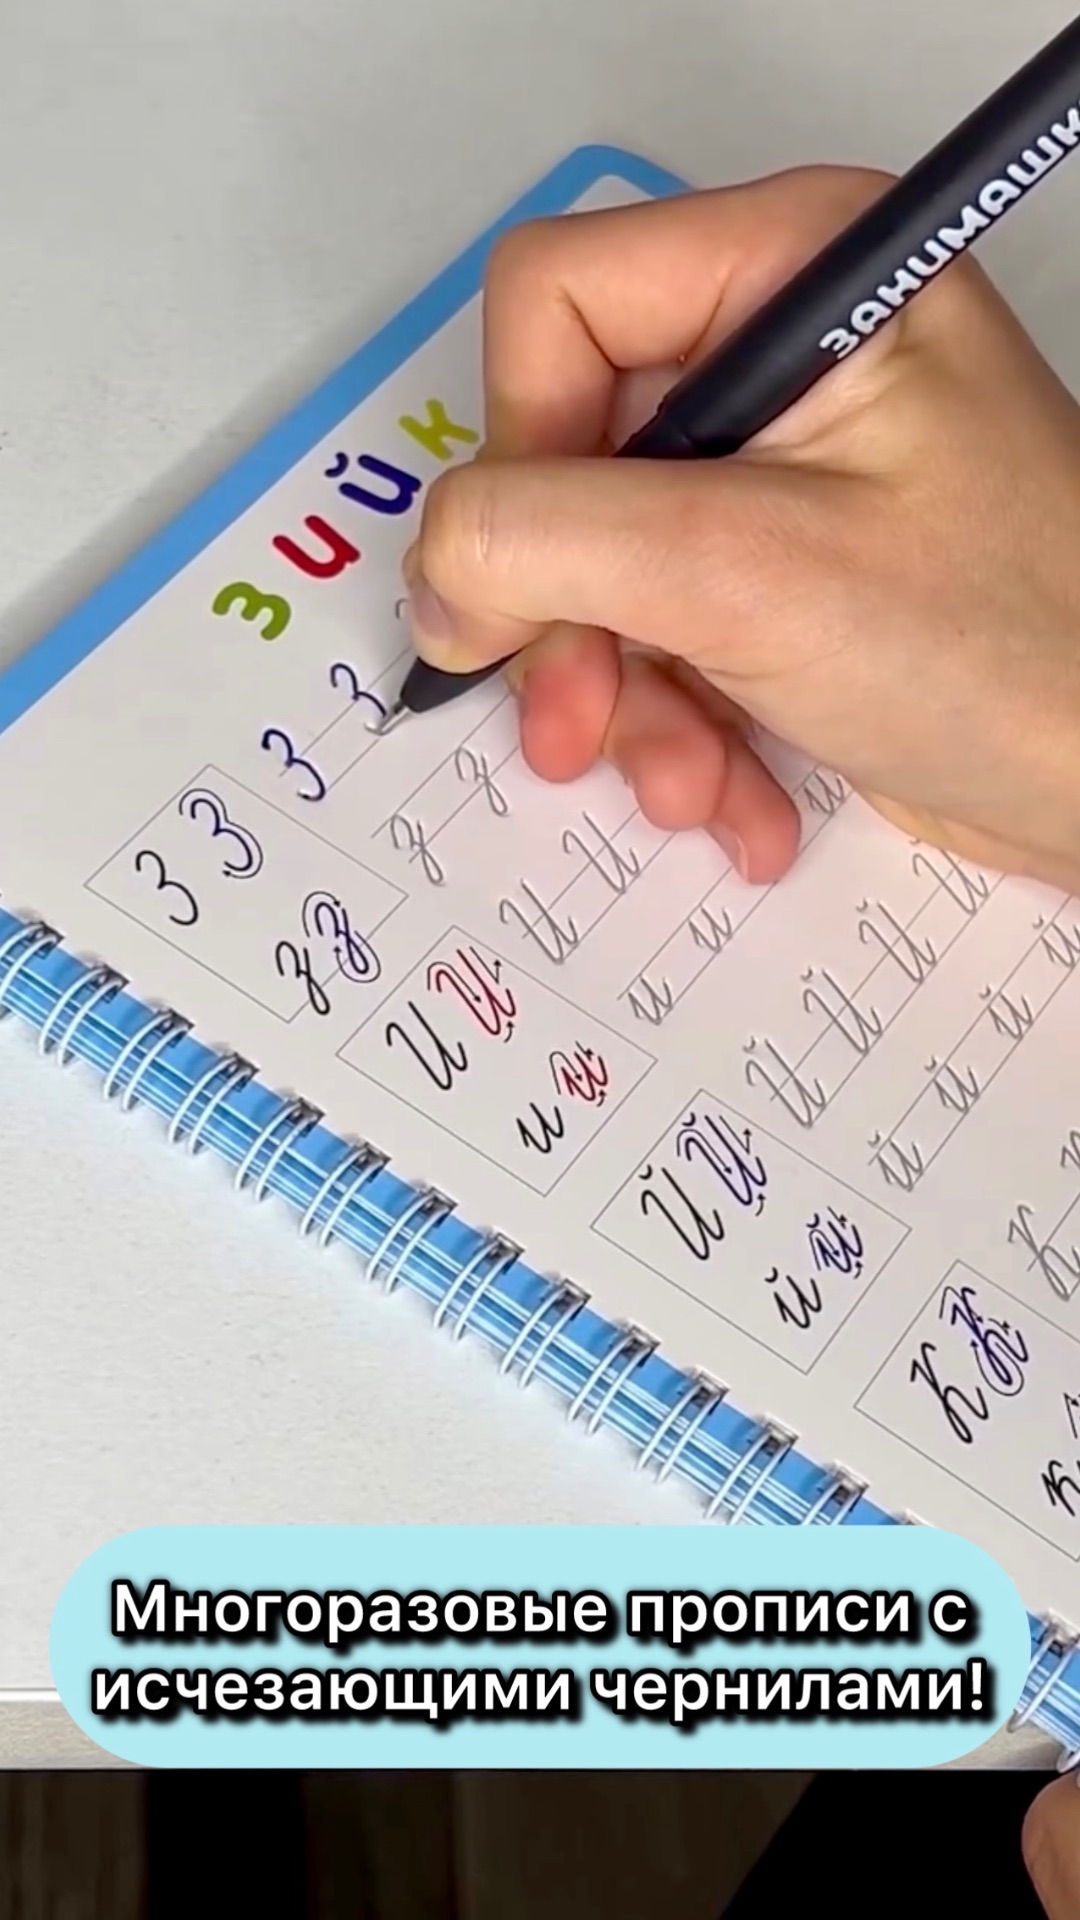 ЗАНИМАШК
З И Й К
З З З З
з з з з
И И И И
и и и и
Й Й Й Й Й
й й й й й
К К К
к
Многоразовые прописи с
исчезающими чернилами!